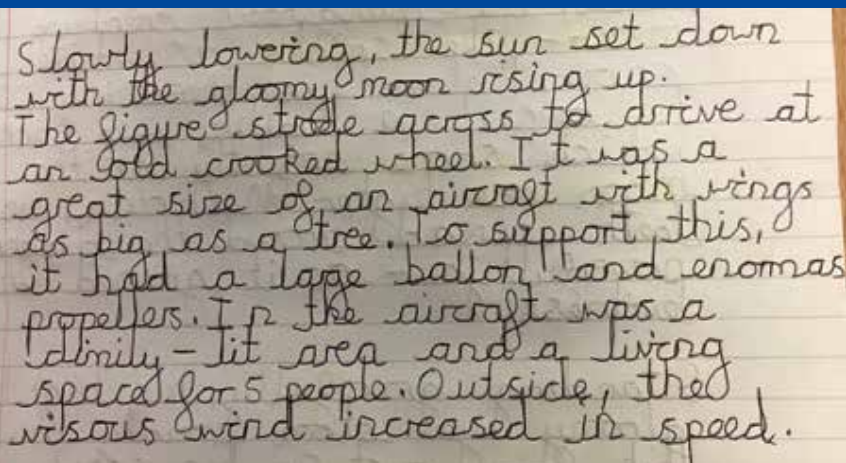 Slowly lowering, the sun set down
with the gloomy moon rising up.
The figure strode across to drrive at
an old crooked wheel. It was a
great size of an aircraft with wings
as big as a tree. To support this,
it had a lage ballon and enormas
propellers. In the aircraft was a
dimily-lit area and a living
space for 5 people. Outside, the
visous wind increased in speed.